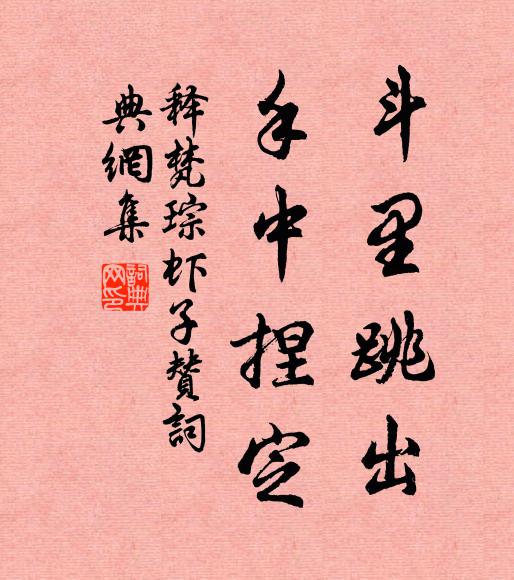 斗里跳出
手中捏定
释梵琮虾子赞詞
典網集
詞典网印